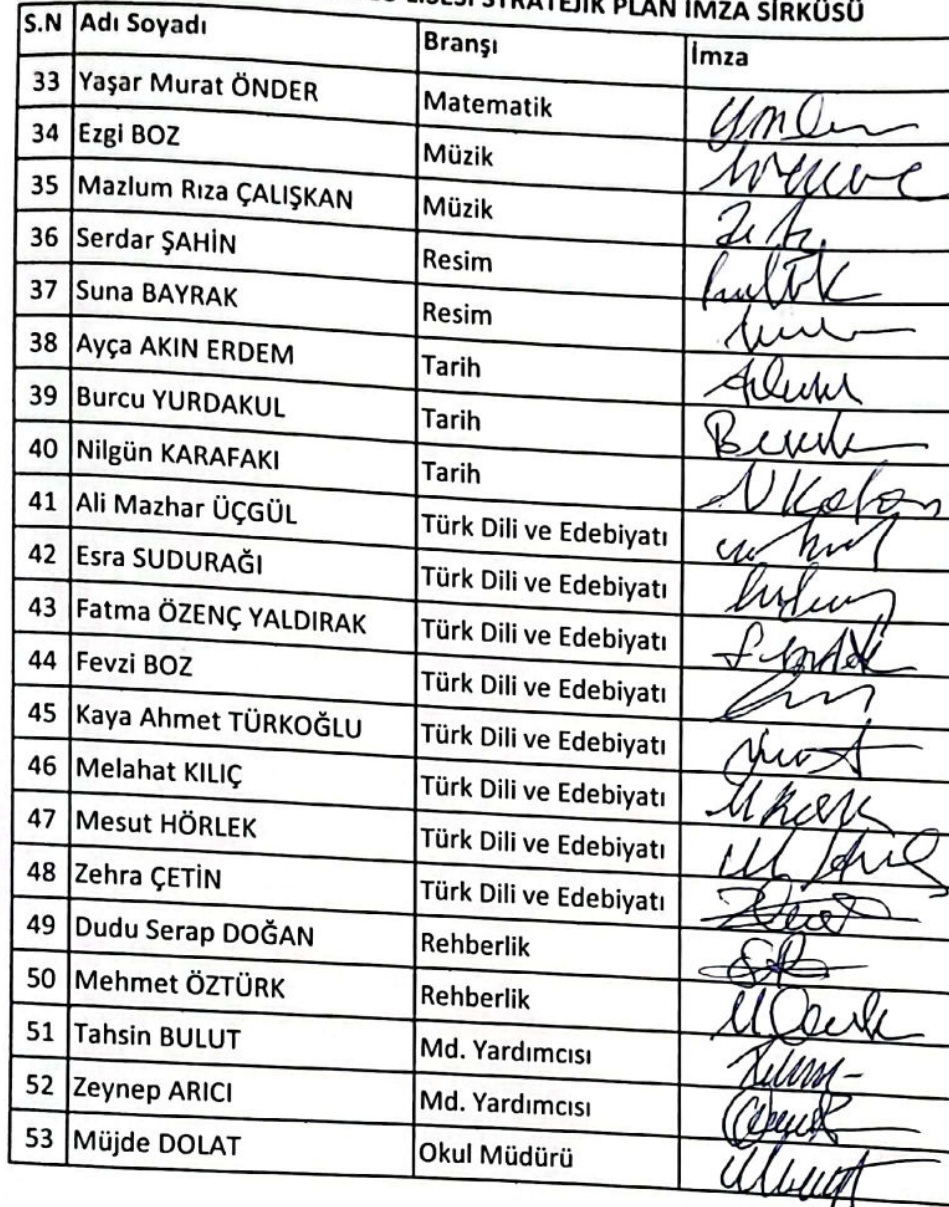 LİSESİ STRATEJİK PLAN İMZA SİRKÜSÜ
S.N Adı Soyadı Branşı İmza
33 Yaşar Murat ÖNDER Matematik
34 Ezgi BOZ Müzik
35 Mazlum Rıza ÇALIŞKAN Müzik
36 Serdar ŞAHİN Resim
37 Suna BAYRAK Resim
38 Ayça AKIN ERDEM Tarih
39 Burcu YURDAKUL Tarih
40 Nilgün KARAFAKI Tarih
41 Ali Mazhar ÜÇGÜL Türk Dili ve Edebiyatı
42 Esra SUDURAĞI Türk Dili ve Edebiyatı
43 Fatma ÖZENÇ YALDIRAK Türk Dili ve Edebiyatı
44 Fevzi BOZ Türk Dili ve Edebiyatı
45 Kaya Ahmet TÜRKOĞLU Türk Dili ve Edebiyatı
46 Melahat KILIÇ Türk Dili ve Edebiyatı
47 Mesut HÖRLEK Türk Dili ve Edebiyatı
48 Zehra ÇETİN Türk Dili ve Edebiyatı
49 Dudu Serap DOĞAN Rehberlik
50 Mehmet ÖZTÜRK Rehberlik
51 Tahsin BULUT Md. Yardımcısı
52 Zeynep ARICI Md. Yardımcısı
53 Müjde DOLAT Okul Müdürü